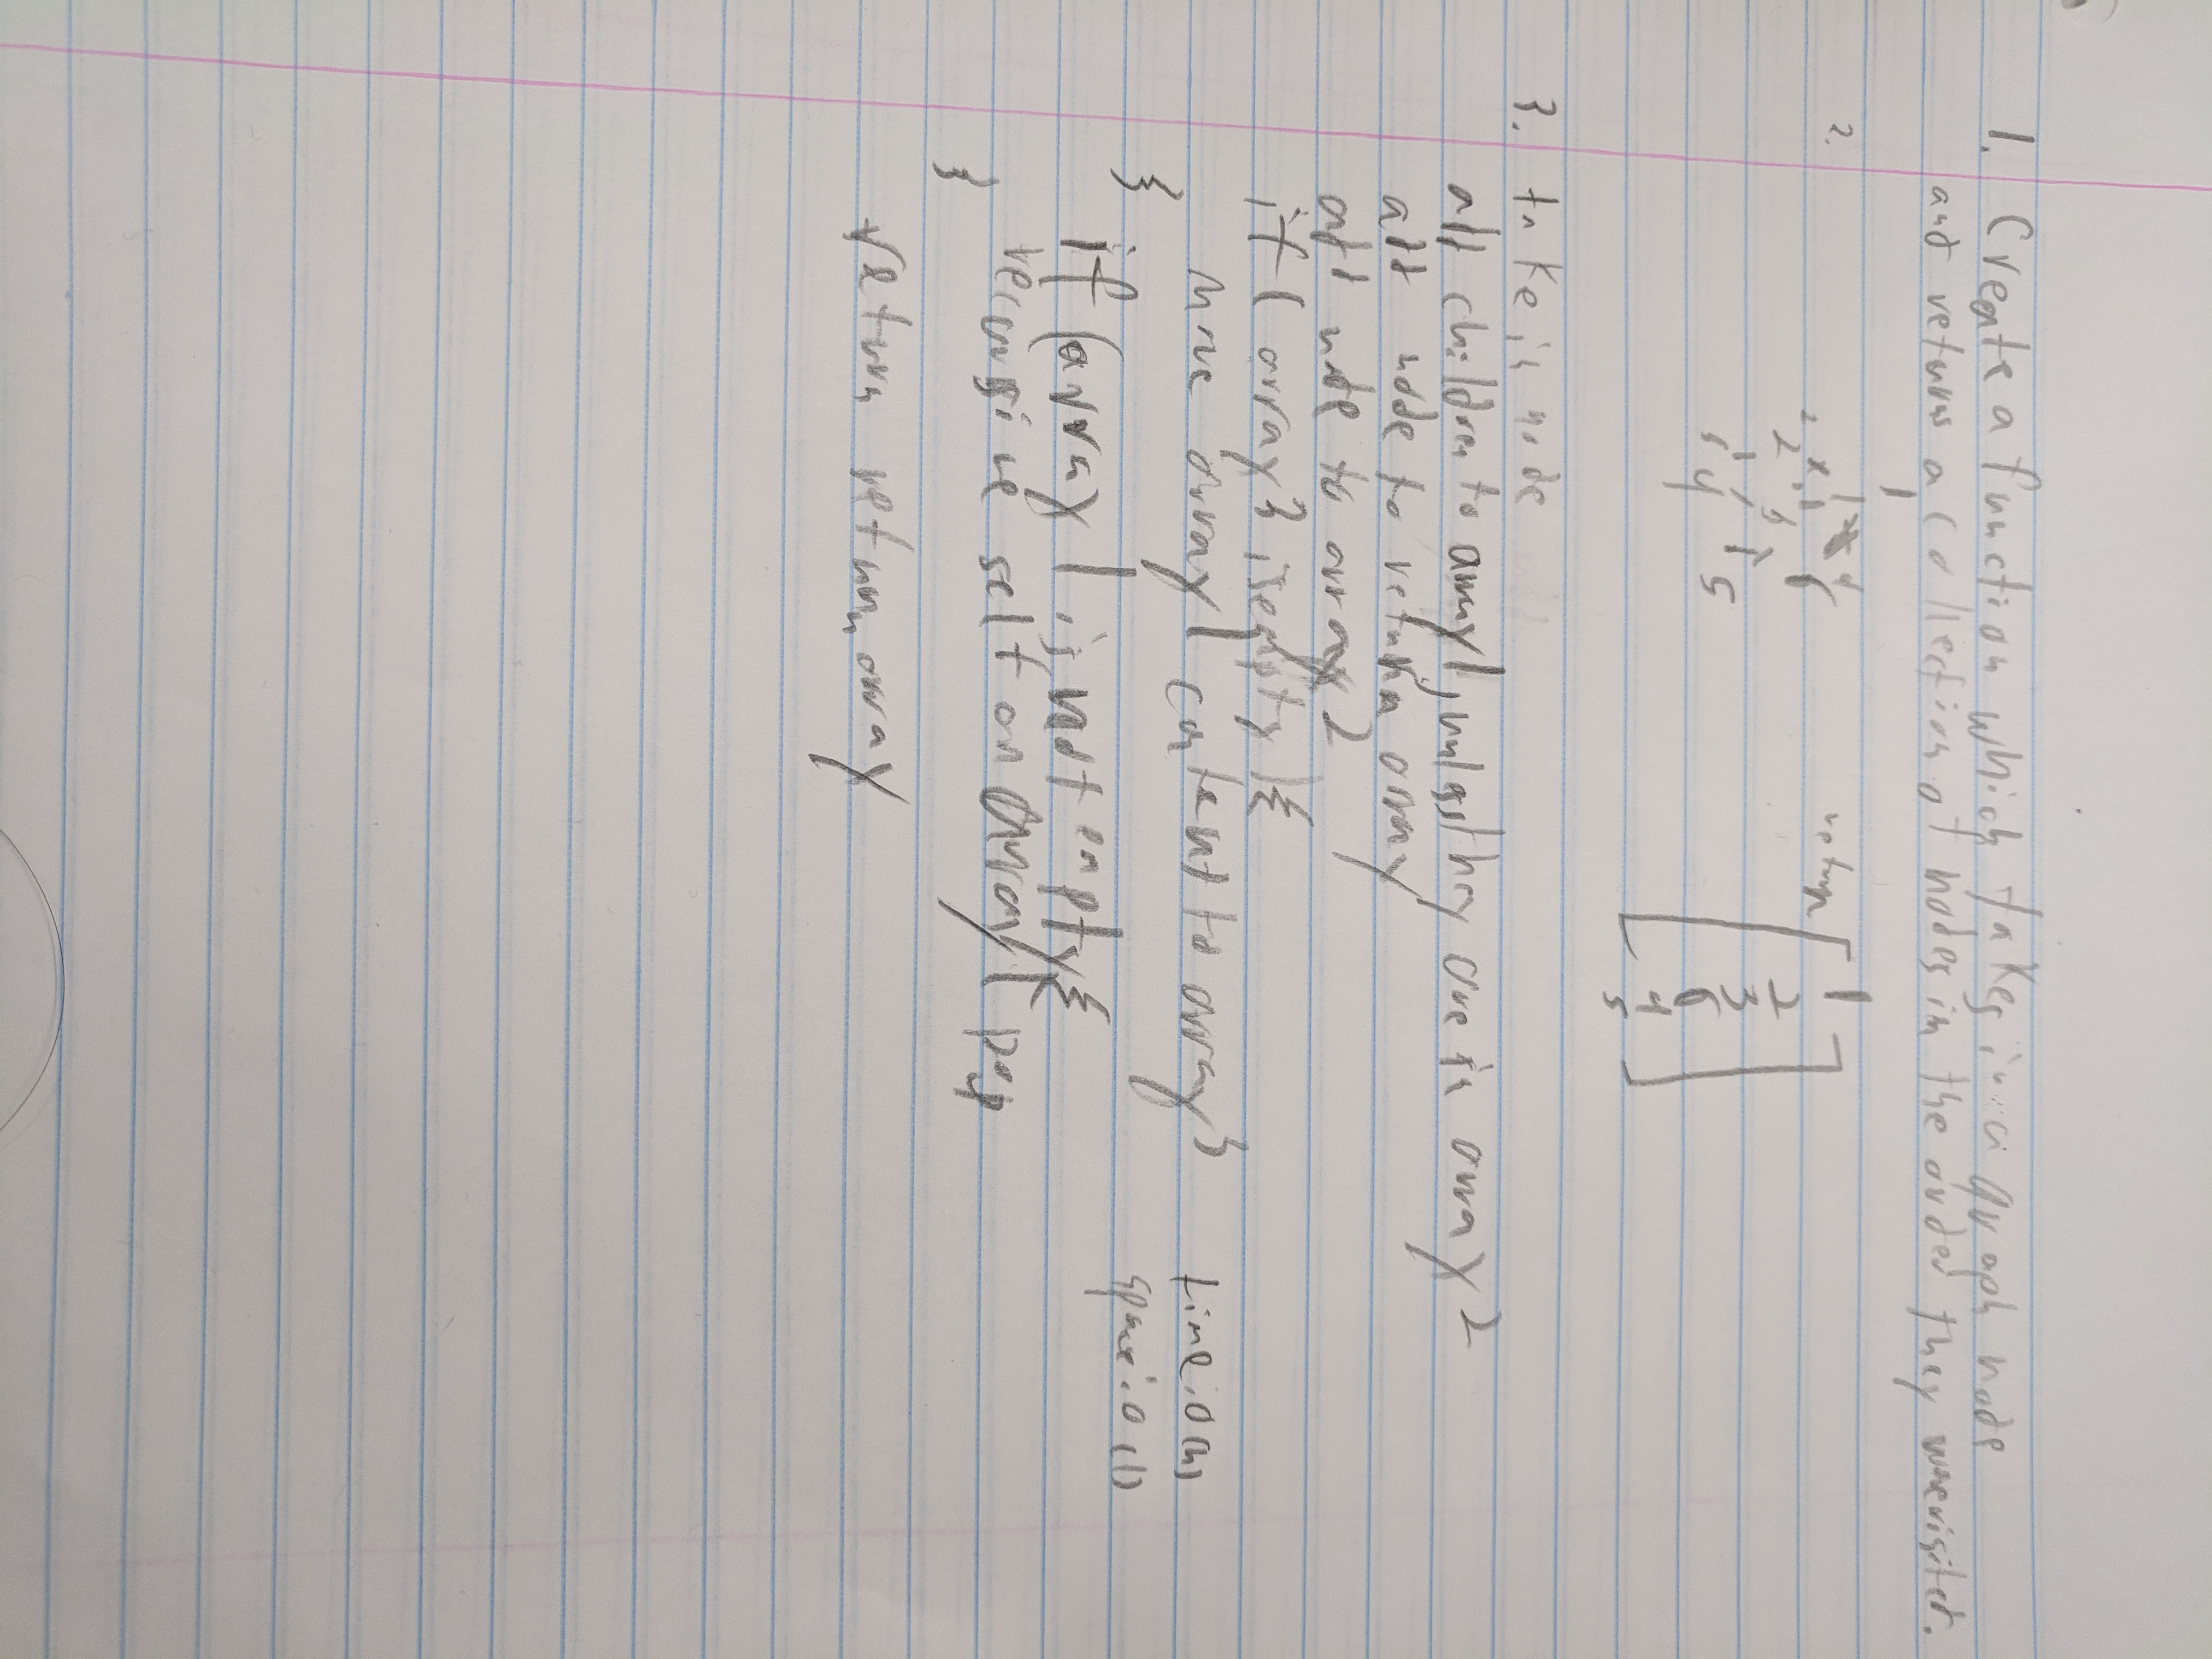 1. Create a function which takes in a graph node
and returns a collection of nodes in the order they were visited.
2.
1
return
1
2
3
6
4
5
2
6
4
5
3. take in node
add children to array1, unless they are in array2
add node to return array
add node to array2
if (array3 is empty) {
move array1 content to array3
}
if (array1 is not empty) {
recursive self on array1 pop
}
return return array
time: O(n)
space: O(1)